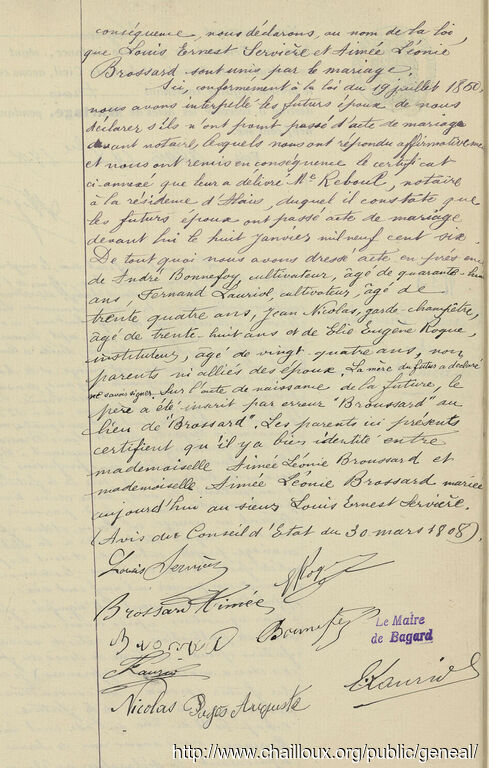 conséquence, nous déclarons, au nom de la loi,
que Louis Ernest Servière et Aimée Léonie
Brossard sont unis par le mariage.
Ici, conformément à la loi du 19 juillet 1850,
nous avons interpellé les futurs époux de nous
déclarer s'ils n'ont point passé d'acte de mariage
devant notaire, lesquels nous ont répondu affirmativement
et nous ont remis en conséquence le certificat
ci-annexé que leur a délivré Me Reboul, notaire
à la résidence d'       , duquel il constate que
les futurs époux ont passé acte de mariage
devant lui le huit janvier mil neuf cent six.
De tout quoi nous avons dressé acte, en présence
de André Bonnefoy, cultivateur, âgé de quarante-
ans, Fernand Lauriol, cultivateur, âgé de
trente quatre ans, Jean Nicolas, garde-champêtre,
âgé de trente-huit ans et de Elie Eugène Roque,
instituteur, âgé de vingt-quatre ans, non
parents ni alliés des époux. La mère du futur a déclaré
ne savoir signer. Sur l'acte de naissance de la future, le
père a été inscrit par erreur "Broussard" au
lieu de "Brossard". Les parents ici présents
certifient qu'il y a bien identité entre
mademoiselle Aimée Léonie Broussard et
mademoiselle Aimée Léonie Brossard mariée
aujourd'hui au sieur Louis Ernest Servière.
(Avis du Conseil d'Etat du 30 mars 1808).
Louis Servière
Brossard Aimée
Bonnefoy
Le Maire
de Bagard
Lauriol
Nicolas Pagès Auguste
E. Lauriol
http://www.chailloux.org/public/geneal/